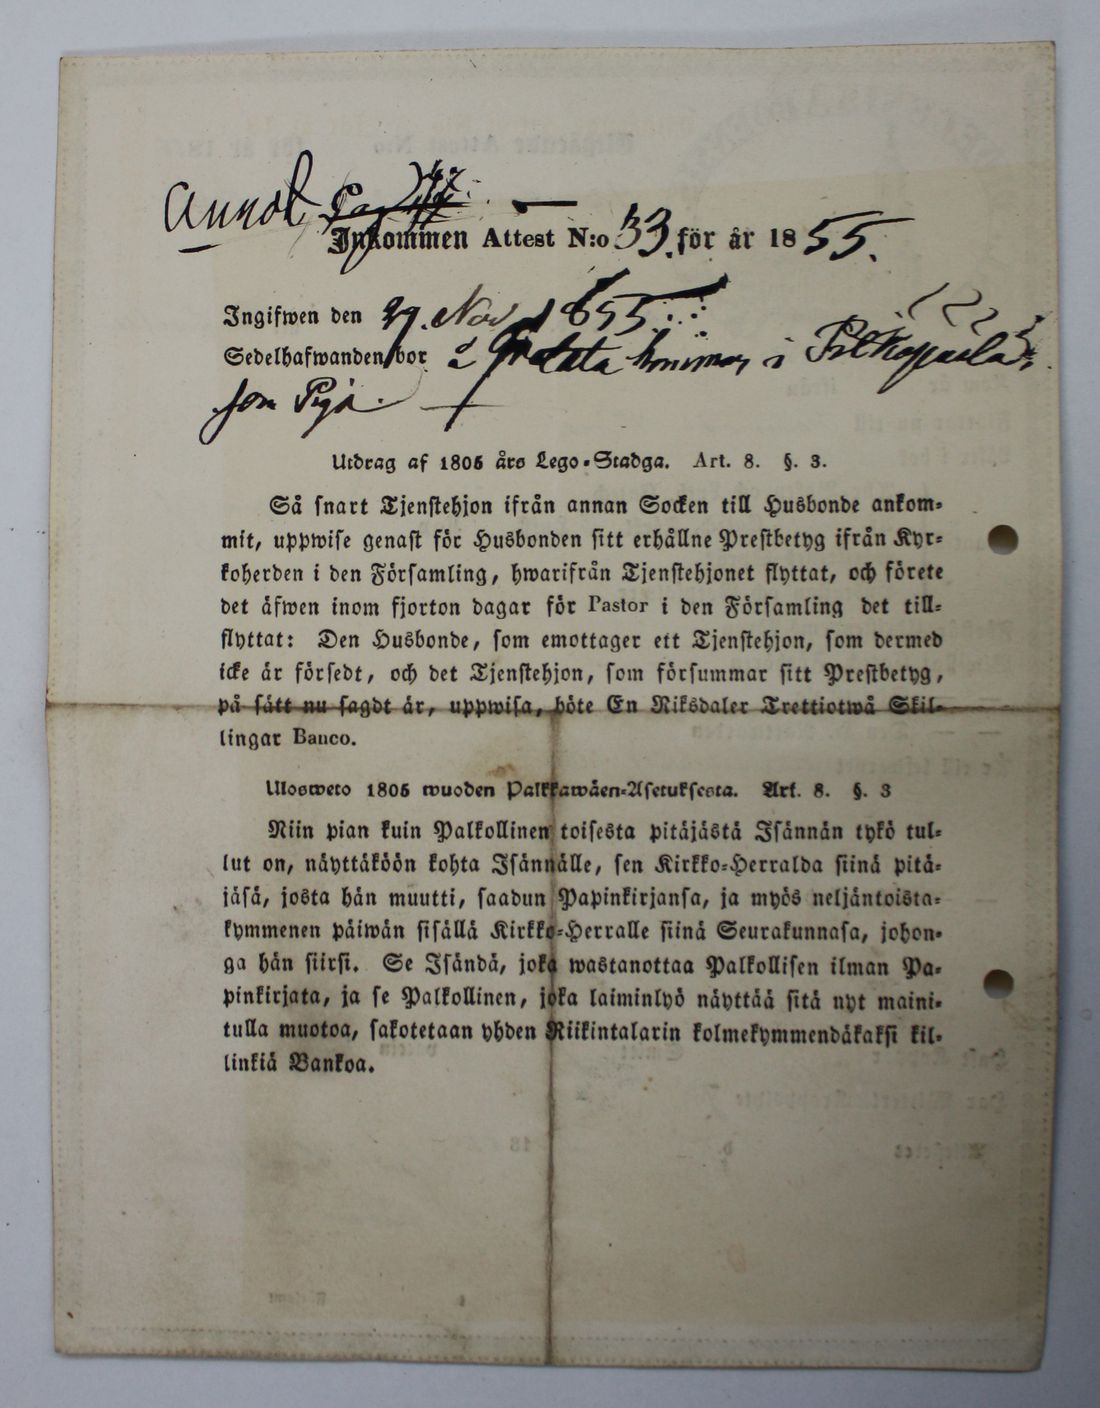 Annot. Pag.
Inkommen Attest N:o 33. för år 1855.
Ingifwen den 29. Nov 1855.
Sedelhafwanden bor å i
som Piga.
Utdrag af 1805 års Lego-Stadga. Art. 8. §. 3.
Så snart Tjenstehjon ifrån annan Socken till Husbonde ankom-
mit, uppwise genast för Husbonden sitt erhållne Prestbetyg ifrån Kyr-
koherden i den Församling, hwarifrån Tjenstehjonet flyttat, och förete
det äfwen inom fjorton dagar för Pastor i den Församling det till-
flyttat: Den Husbonde, som emottager ett Tjenstehjon, som dermed
icke är försedt, och det Tjenstehjon, som försummar sitt Prestbetyg,
på sätt nu sagdt är, uppwisa, böte En Riksdaler Trettiotwå Skil-
lingar Banco.
Ulosweto 1805 wuoden Palkkawäen-Asetuksesta. Art. 8. §. 3
Niin pian kuin Palkollinen toisesta pitäjästä Isännän tykö tul-
lut on, näyttäköön kohta Isännälle, sen Kirkko-Herralda siinä pitä-
jäsä, josta hän muutti, saadun Papinkirjansa, ja myös neljäntoista-
kymmenen päiwän sisällä Kirkko-Herralle siinä Seurakunnasa, johon-
ga hän siirsi. Se Isändä, joka wastanottaa Palkollisen ilman Pa-
pinkirjata, ja se Palkollinen, joka laiminlyö näyttää sitä nyt maini-
tulla muotoa, sakotetaan yhden Riikintalarin kolmekymmendäkaksi kil-
linkiä Bankoa.